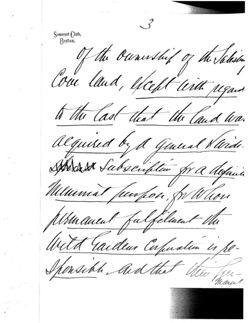 3
Somerset Club,
Boston.
of the ownership of the Salisbury
Cove land, except with regard
to the last that the land was
acquired by a general & wide
subscription for a definite
Memorial purpose, for whose
permanent fulfilment the
Wild Gardens Corporation is re-
sponsible. And that their